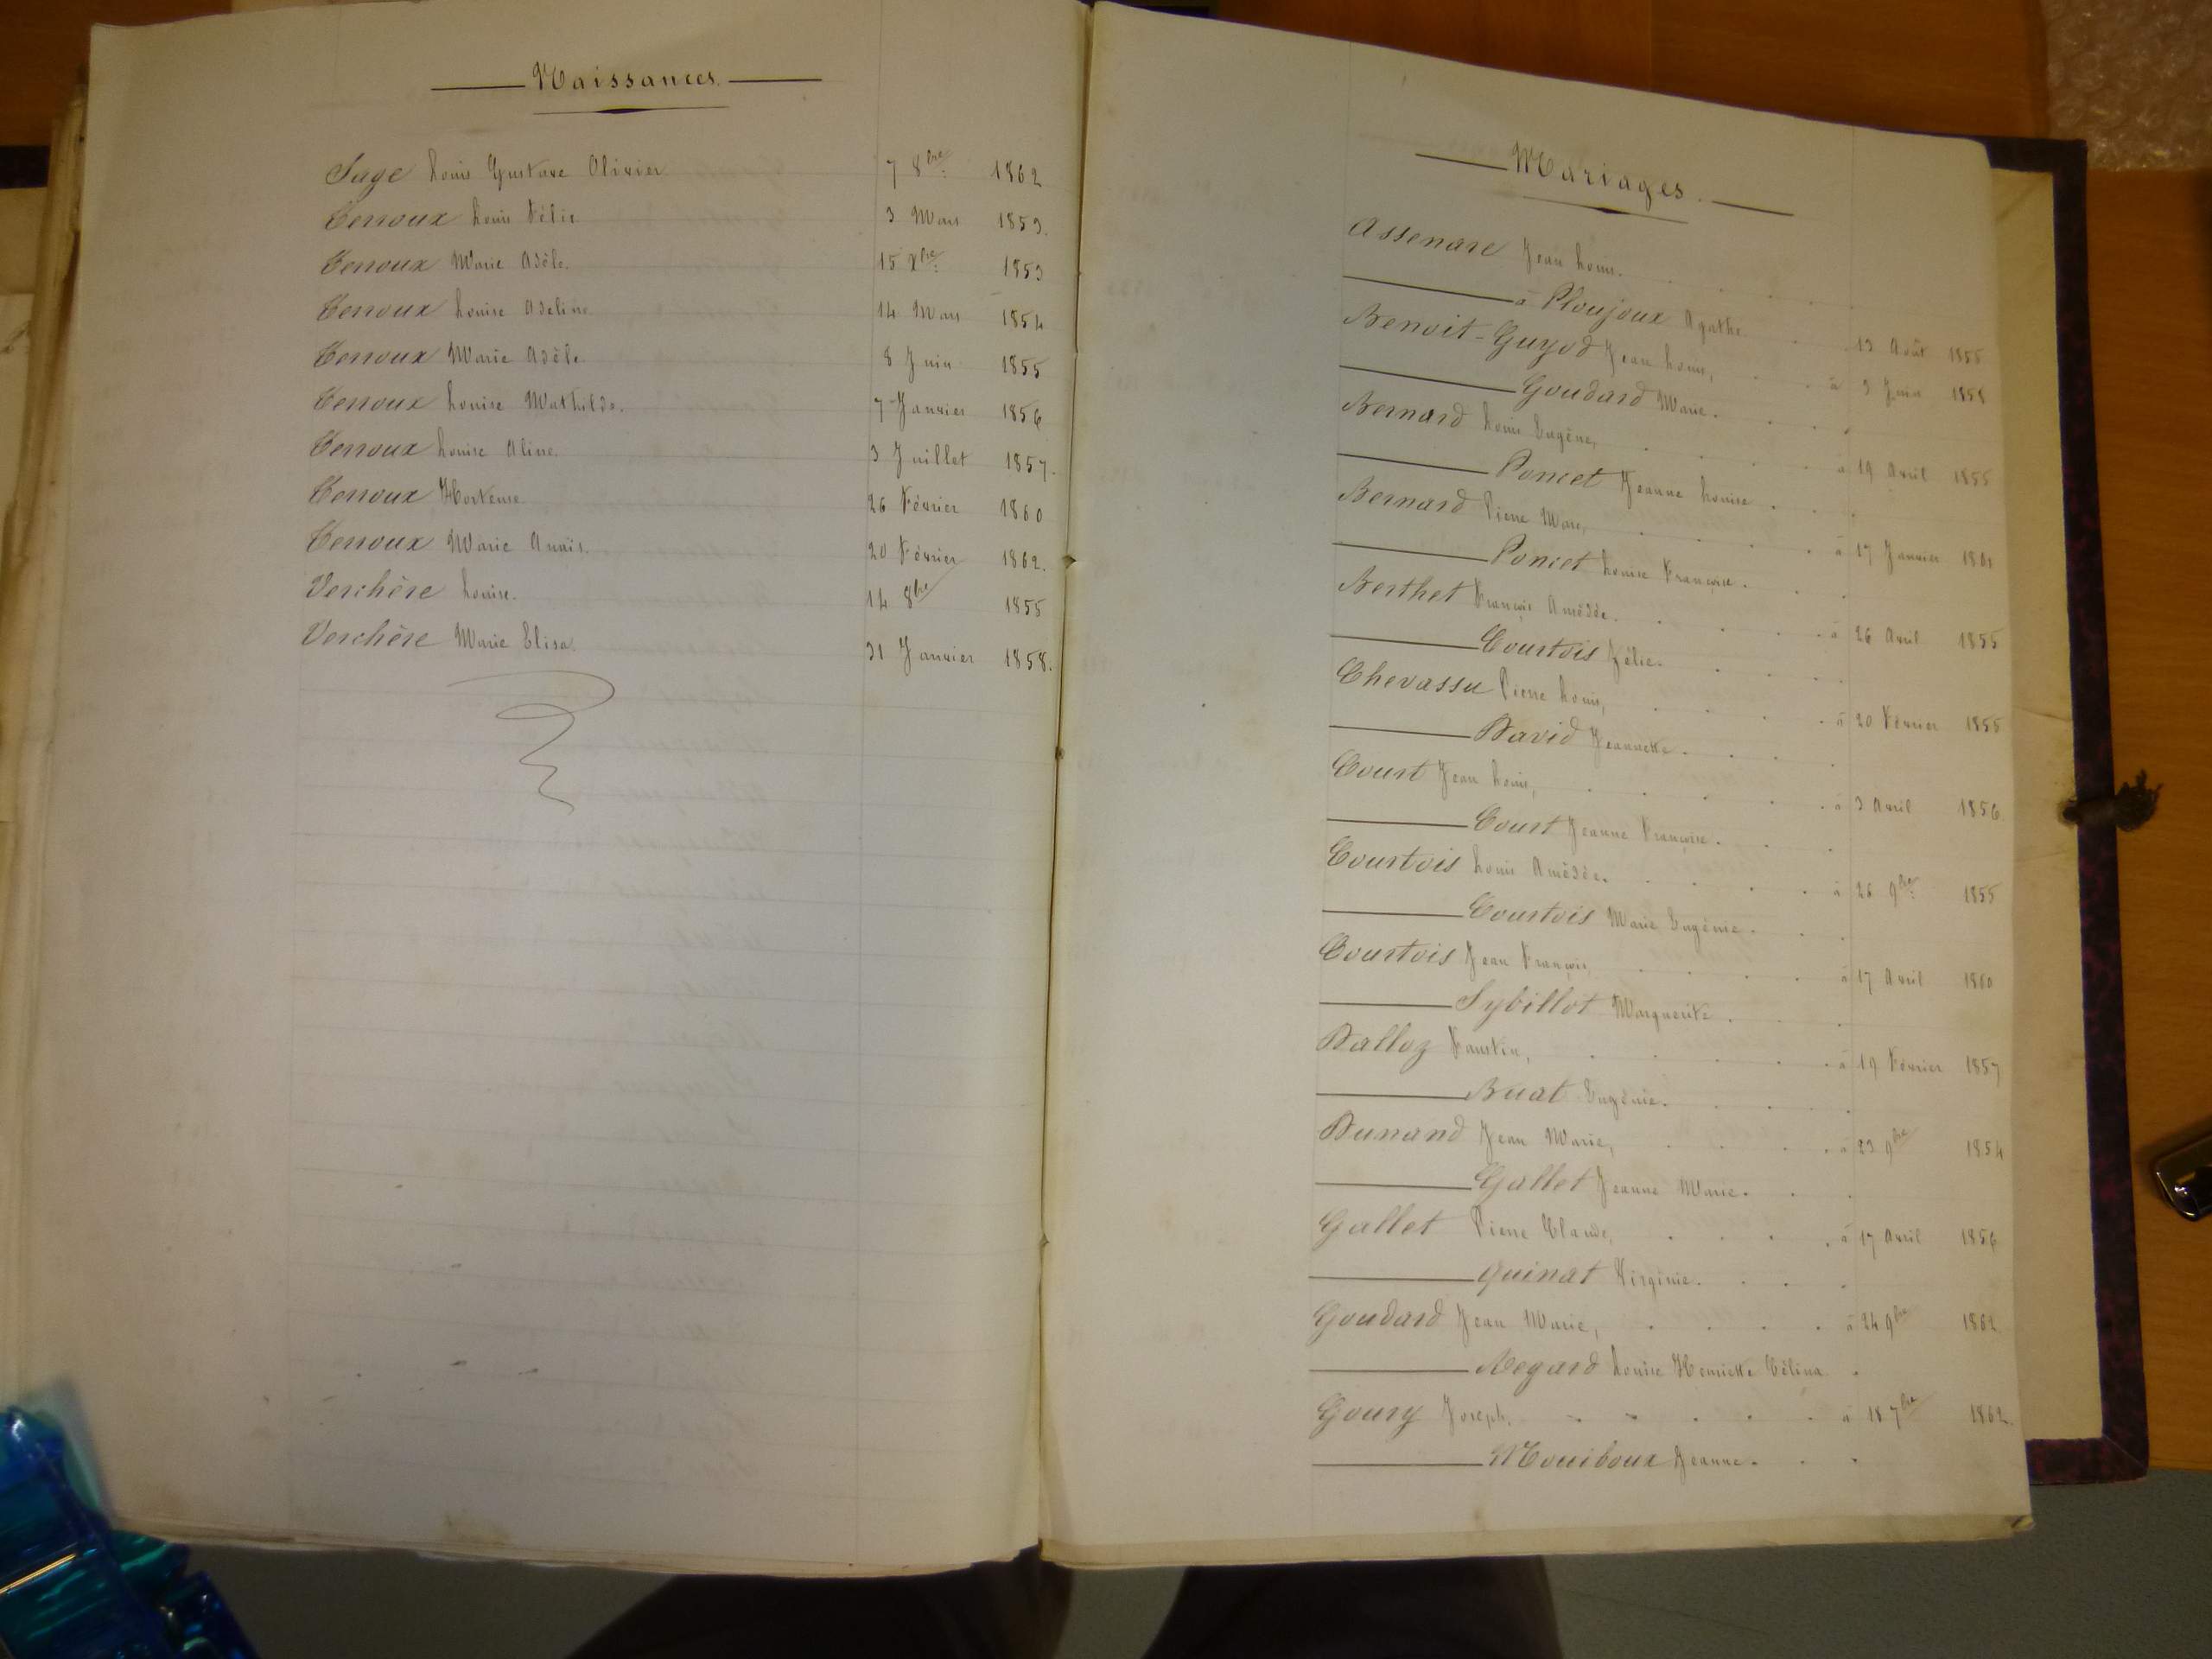 Naissances.
Sage Louis Gustave Olivier 7 8bre 1862
Terroux Louis Félix 3 Mars 1853.
Terroux Marie Adèle. 15 Xbre 1853
Terroux Louise Adeline 14 Mars 1854
Terroux Marie Adèle 8 Juin 1855
Terroux Louise Mathilde. 7 Janvier 1856
Terroux Louise Aline. 3 Juillet 1857.
Terroux Hortense 26 Février 1860
Terroux Marie Anaïs. 20 Février 1862.
Verchère Louise. 14 8bre 1855
Verchère Marie Elisa. 31 Janvier 1858.
Mariages.
Assenare Jean Louis.
à Ploujoux Agathe 13 Août 1855
Benoit-Guyod Jean Louis, à 3 Juin 1858
Goudard Marie.
Bernard Louis Eugène, à 19 Avril 1855
Poncet Jeanne Louise.
Bernard Pierre Marc, à 17 Janvier 1861
Poncet Louise Françoise.
Berthet François Amédée. à 26 Avril 1855
Courtois Zélie.
Chevassu Pierre Louis, à 20 Février 1855
David Jeannette.
Court Jean Louis, à 3 Avril 1856.
Court Jeanne Françoise.
Courtois Louis Amédée. à 26 9bre 1855
Courtois Marie Eugénie.
Courtois Jean François à 17 Avril 1860
Sybillot Marguerite.
Dalloz Faustin, à 19 Février 1857
Buat Eugénie.
Dunand Jean Marie, à 23 9bre 1854
Gallet Jeanne Marie.
Gallet Pierre Claude, à 17 Avril 1856
Guinat Virginie.
Goudard Jean Marie, à 24 9bre 1862.
Regard Louise Henriette Célina.
Goury Joseph. à 18 7bre 1862.
Mouiboux Jeanne.